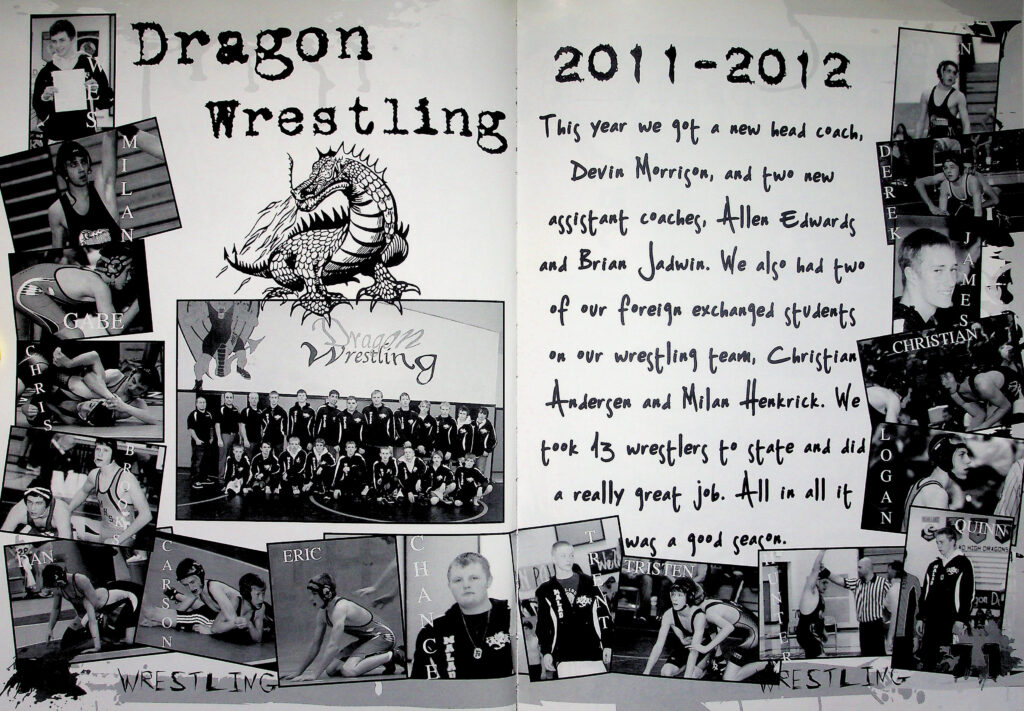 Dragon
Wrestling
WES
MILAN
GABE
CHRIS
Dragon
Wrestling
CARSON
ERIC
CHANCE
WRESTLING
2011-2012
This year we got a new head coach,
Devin Morrison, and two new
assistant coaches, Allen Edwards
and Brian Jadwin. We also had two
of our foreign exchanged students
on our wrestling team, Christian
Andersen and Milan Henkrick. We
took 13 wrestlers to state and did
a really great job. All in all it
was a good season.
DEREK
JAMES
CHRISTIAN
LOGAN
QUINN
TRENT
TRISTEN
WRESTLING
71